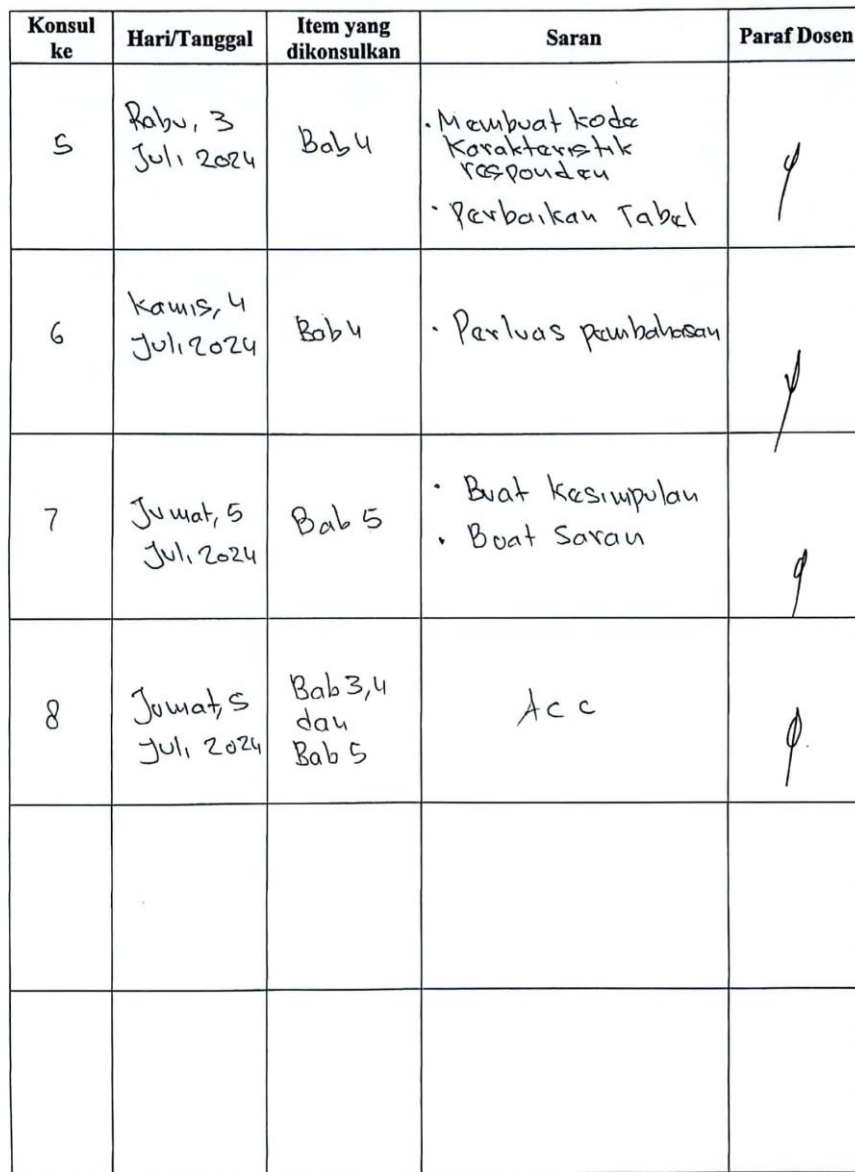 Konsul ke
Hari/Tanggal
Item yang dikonsulkan
Saran
Paraf Dosen
5
Rabu, 3
Juli 2024
Bab 4
• Membuat kode
Karakteristik
responden
• Perbaikan Tabel
6
Kamis, 4
Juli 2024
Bab 4
• Perluas pembahasan
7
Jumat, 5
Juli 2024
Bab 5
• Buat Kesimpulan
• Buat Saran
8
Jumat, 5
Juli 2024
Bab 3,4
dan
Bab 5
Acc